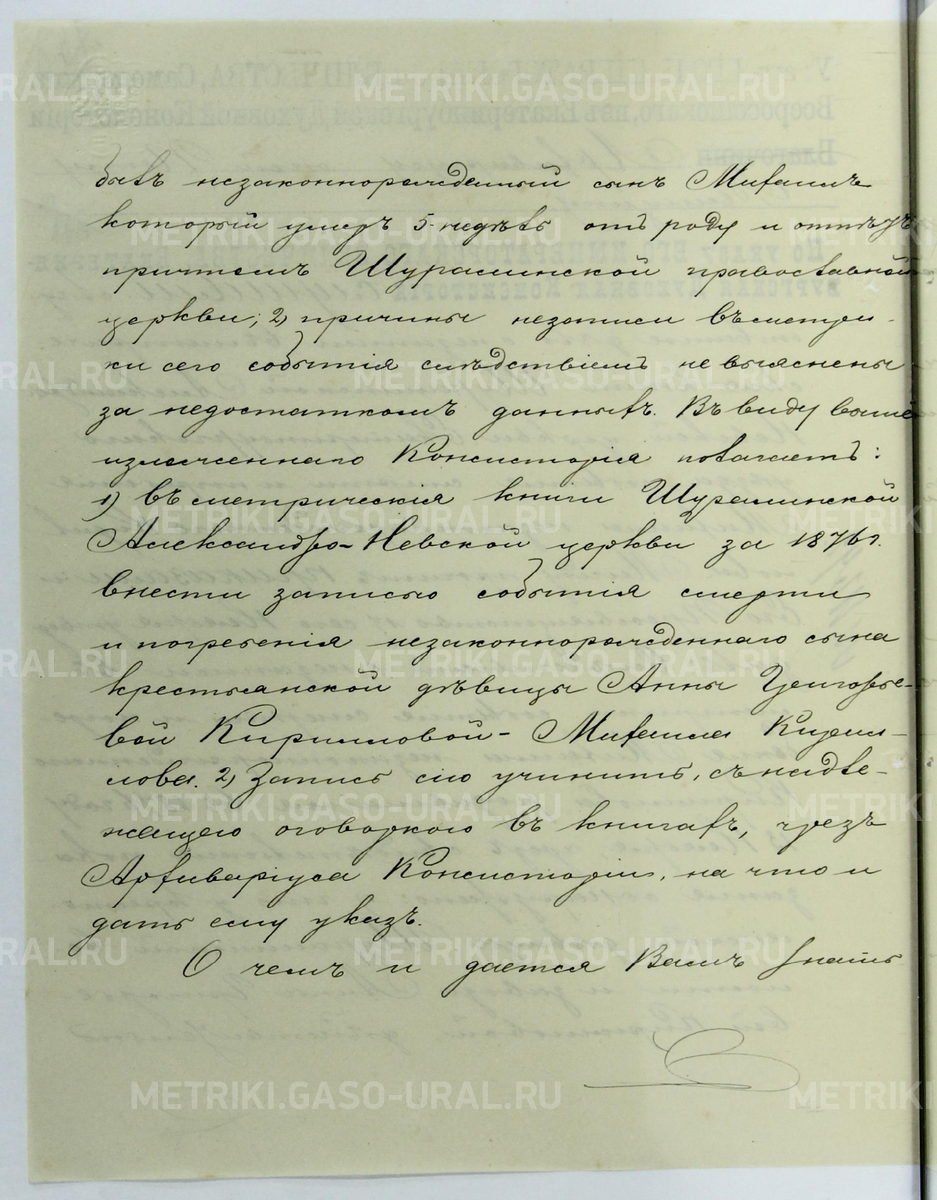 былъ незаконнорожденный сынъ Михаилъ
который умеръ 5 недѣль отъ роду и отпѣтъ
причтомъ Шуралинской православной
церкви; 2) причины незаписи въ метри-
ки сего событія слѣдствіемъ не выяснены
за недостаткомъ данныхъ. Въ виду выше
изложеннаго Консисторія полагаетъ:
1) въ метрическія книги Шуралинской
Александро-Невской церкви за 1876 г.
внести записью событія смерти
и погребенія незаконнорожденнаго сына
крестьянской дѣвицы Анны Григорье-
вой Кирилловой - Михаила Кирил-
лова. 2) Запись сію учинить, съ надле-
жащею оговоркою въ книгахъ, чрезъ
Архиваріуса Консисторіи, на что и
дать ему указъ.
О чемъ и дается Вамъ знать
METRIKI.GASO-URAL.RU